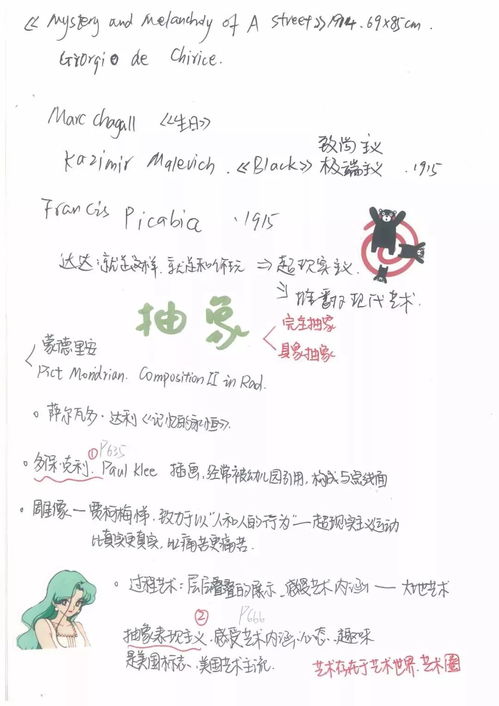 《Mystery and Melancholy of A street》1914. 69×85cm.
Giorgio de Chirice.
Marc chagall 《生日》
Kazimir Malevich. 《Black》 致尚主义 极端主义 .1915
Francis Picabia .1915
达达·就是这样,就是和你玩 ⇒ 超现实主义.
⇒ 推翻现代艺术.
抽象
完全抽象
具象抽象
蒙德里安
Pict Mondrian. Composition II in Red.
萨尔瓦多·达利《记忆的永恒》.
① P635
多保·克利. Paul Klee 插画,经常被幼儿园引用,构成与点线面
雕像—贾柯梅悌,致力于以“人和人的行为”—超现实主义运动
比真实更真实,比痛苦更痛苦.
过程艺术:层层叠叠的展示,感受艺术内涵 —— 大地艺术
② P666
抽象表现主义,感受艺术内涵,心态,趣味
是美国标志、美国艺术主流.
艺术存在于艺术世界.艺术圈